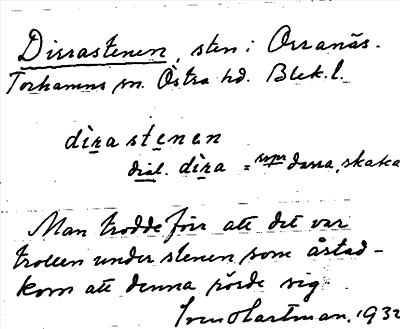 Dirrastenen, sten i Orranäs.
Torhamns sn. Östra hd. Blek. l.
dirastenen
dial. dira = darra, skaka
Man trodde förr att det var
trollen under stenen som åstad-
kom att denna rörde sig.
Sven Hartman. 1932